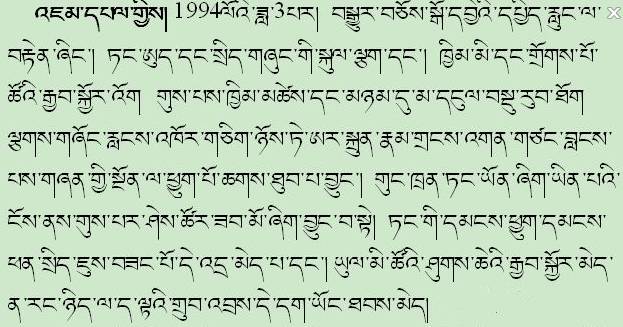 འཇམ་དཔལ་གྱིས། 1994ལོའི་ཟླ་3པར། བསྒྱུར་བཅོས་སྒོ་དབྱེའི་དབྱིད་རླུང་ལ་
བརྟེན་ཞིང་། ཏང་ཨུད་དང་སྲིད་གཞུང་གི་སྐུལ་ལྕག་དང་། ཁྱིམ་མི་དང་གྲོགས་པོ་
ཚོའི་རྒྱབ་སྐྱོར་འོག གུས་པས་ཁྱིམ་མཚེས་དང་མཉམ་དུ་མ་དངུལ་བསྡུ་རུབ་ཐོག
ལྕགས་གཞོང་རླངས་འཁོར་གཅིག་ཉོས་ཏེ་ཨར་སྐྲུན་རྣམ་གྲངས་འགན་གཙང་བླངས་
པས་གཞན་གྱི་སྔོན་ལ་ཕྱུག་པོ་ཆགས་ཐུབ་པ་བྱུང་། གུང་ཁྲན་ཏང་ཡོན་ཞིག་ཡིན་པའི་
ངོས་ནས་གུས་པར་ཤེས་ཚོར་ཟབ་མོ་ཞིག་བྱུང་བ་སྟེ། ཏང་གི་དམངས་ཕྱུག་དམངས་
ཕན་སྲིད་ཇུས་བཟང་པོ་དེ་འདྲ་མེད་པ་དང་། ཡུལ་མི་ཚོའི་ཤུགས་ཆེའི་རྒྱབ་སྐྱོར་མེད་
ན་རང་ཉིད་ལ་ད་ལྟའི་གྲུབ་འབྲས་དེ་དག་ཡོང་ཐབས་མེད།